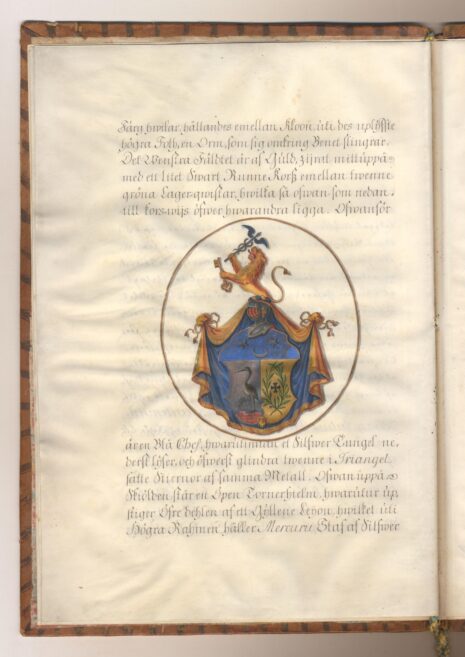 Färg hwilar, hållandes emellan Kloon, uti des uplyffte
högra Foth, en Orm, som sig omkring Benet slingrar.
Det Wenstra Fäldtet är af Guld, zirat mitt uppå
med ett litet Swart Runne Korß emellan twenne
gröna Lager-qwistar, hwilka så ofwan som nedan
till kors-wijs öfwer hwarandra ligga. Ofwanför
är en Blå Chef, hwarutinnan et Silfwer Tungel ne-
derst löser, och öfwerst glindra twenne i Triangel
satte Stiernor af samma Metall. Ofwan uppå
Skiölden står en Öpen Tornerhielm, hwarutur up-
stiger Öfre dehlen af ett Gyllene Leyon, hwilket uti
Högra Ramen håller Mercurii Staf af Silfwer